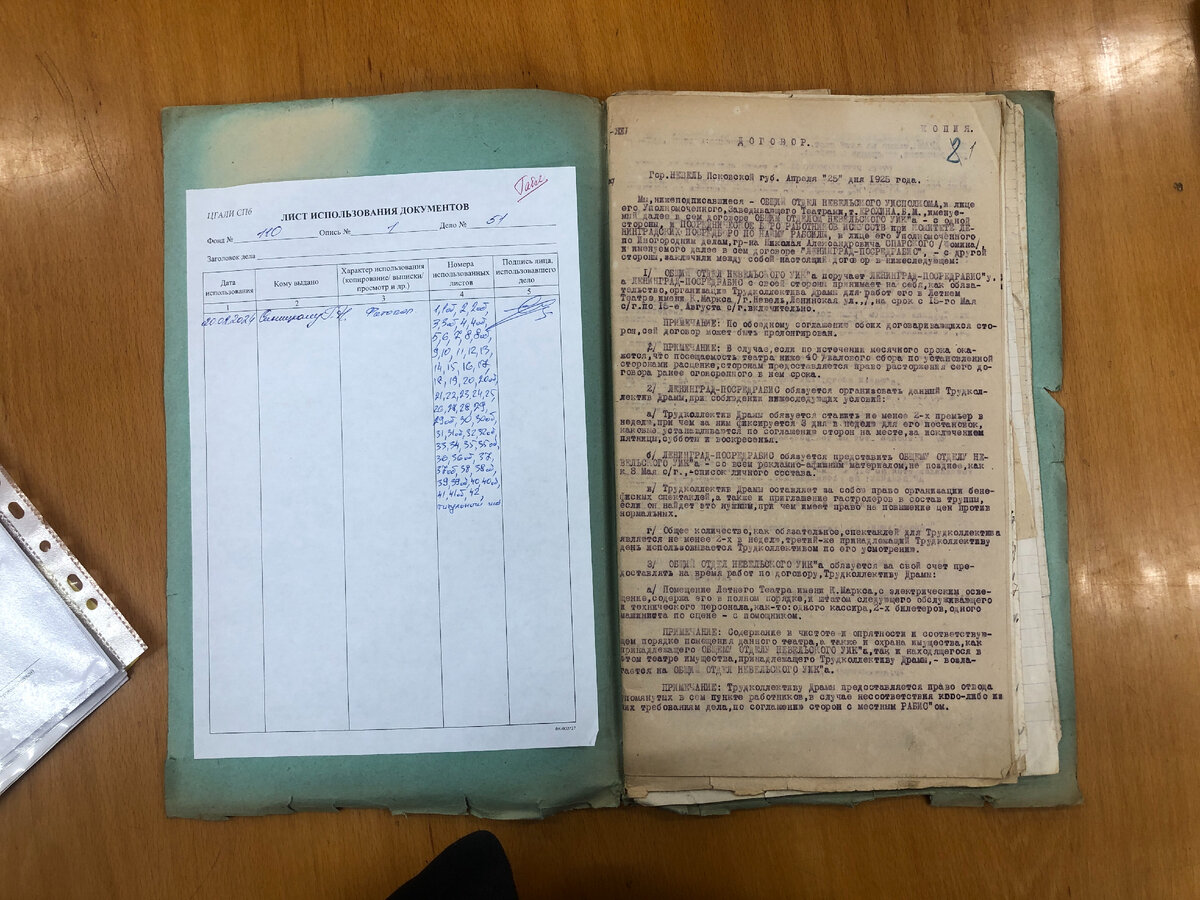 ЦГАЛИ СПб
ЛИСТ ИСПОЛЬЗОВАНИЯ ДОКУМЕНТОВ
Фонд № 110 Опись № 1 Дело № 51
Заголовок дела
Дата использования
Кому выдано
Характер использования (копирование/ выписки/ просмотр и др.)
Номера использованных листов
Подпись лица, использовавшего дело
2 3 4 5
1, 1об, 2, 2об,
3, 3об, 4, 4об,
5, 6, 7, 8, 8об,
9, 10, 11, 12, 13,
14, 15, 16, 17,
18, 19, 20, 20об,
21, 22, 23, 24, 25
29об, 30, 30об,
31, 31об, 32, 32об,
33, 34, 35, 35об
36, 36об, 37,
37об, 38, 38об,
39, 39об, 40, 40об,
41, 41об, 42,
КОПИЯ.
ДОГОВОР.
Гор.НЕВЕЛЬ Псковской губ. Апреля "25" дня 1925 года.
Мы,нижеподписавшиеся - ОБЩИЙ ОТДЕЛ НЕВЕЛЬСКОГО УИСПОЛКОМА,в лице
его Уполномоченного,Заведывающего Театрами,т. В.М.,именуе-
мый далее в сем договоре ОБЩИМ ОТДЕЛОМ НЕВЕЛЬСКОГО УИК"а - с одной
стороны, и ПОСРЕДНИЧЕСКОЕ БЮРО РАБОТНИКОВ ИСКУССТВ при КОМИТЕТЕ ЛЕ-
НИНГРАДСКИХ ПОСРЕДБЮРО ПО НАЙМУ РАБСИЛЫ, в лице его Уполномоченного
по Иногородним делам,гр-на Николая Александровича СПАРСКОГО /Фомина/,
и именуемого далее в сем договоре "ЛЕНИНГРАД-ПОСРЕДРАБИС", - с другой
стороны,заключили между собой настоящий договор в нижеследующем:
1/ ОБЩИЙ ОТДЕЛ НЕВЕЛЬСКОГО УИК"а поручает ЛЕНИНГРАД-ПОСРЕДРАБИС"у,
а ЛЕНИНГРАД-ПОСРЕДРАБИС с своей стороны принимает на себя,как обяза-
тельство,организацию Трудколлектива Драмы для работ его в Летнем
Театре имени К.Маркса,/г.Невель,Ленинская ул.,/,на срок с 15-го Мая
с/г.по 15-е Августа с/г.включительно.
ПРИМЕЧАНИЕ: По обоюдному соглашению обоих договаривающихся сто-
рон,сей договор может быть пролонгирован.
2/ ПРИМЕЧАНИЕ: В случае,если по истечении месячного срока ока-
жется,что посещаемость театра ниже 40 %валового сбора по установленной
сторонами расценке,сторонам предоставляется право расторжения сего до-
говора ранее оговоренного в нем срока.
2/ ЛЕНИНГРАД-ПОСРЕДРАБИС обязуется организовать данный Трудкол-
лектив Драмы,при соблюдении нижеследующих условий:
а/ Трудколлектив Драмы обязуется ставить не менее 2-х премьер в
неделю,при чем за ним фиксируется 3 дня в неделю для его постановок,
каковые устанавливаются по соглашению сторон на месте,за исключением
пятницы,субботы и воскресенья.
б/ ЛЕНИНГРАД-ПОСРЕДРАБИС обязуется представить ОБЩЕМУ ОТДЕЛУ НЕ-
ВЕЛЬСКОГО УИК"а - со всем рекламно-афишным материалом,не позднее,как
к 8 Мая с/г.,-список личного состава.
в/ Трудколлектив Драмы оставляет за собою право организации бене-
фисных спектаклей,а также и приглашение гастролеров в состав труппы,
если он найдет это нужным,при чем имеет право на повышение цен против
нормальных.
г/ Общее количество,как обязательное,спектаклей для Трудколлектива
является не менее 2-х в неделю,третий-же принадлежащий Трудколлективу
день используется Трудколлективом по его усмотрению.
3/ ОБЩИЙ ОТДЕЛ НЕВЕЛЬСКОГО УИК"а обязуется за свой счет пре-
доставлять на время работ по договору,Трудколлективу Драмы:
а/ Помещение Летнего Театра имени К.Маркса,с электрическим осве-
щение,содержа его в полном порядке,и штатом следующего обслуживающего
и технического персонала,как-то:одного кассира,2-х билетеров,одного
машиниста по сцене - с помощником.
ПРИМЕЧАНИЕ: Содержание в чистоте и опрятности и соответствую-
щем порядке помещения данного театра,а также и охрана имущества,как
принадлежащего ОБЩЕМУ ОТДЕЛУ НЕВЕЛЬСКОГО УИК"а,так и находящегося в
этом театре имущества,принадлежащего Трудколлективу Драмы,- возла-
гается на ОБЩИЙ ОТДЕЛ НЕВЕЛЬСКОГО УИК"а.
ПРИМЕЧАНИЕ: Трудколлективу Драмы предоставляется право отвода
упомянутых в сем пункте работников,в случае несоответствия кого-либо из
них требованиям дела,по соглашению сторон с местным РАБИС"ом.